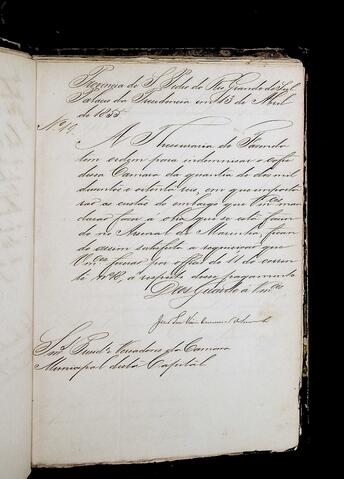 Provincia de S. Pedro do Rio Grande do Sul
Palacio da Presidencia em 13 de Abril
de 1855
N.º 19.
A Thesouraria de Fazenda
tem ordem para indemnisar o cofre
dessa Camara da quantia de dois mil
duzentos e oitenta reis, em que importa
rão as custas do embargo que Vm.ces man
darão fazer á obra que se está fazen
do no Arsenal de Marinha, fican
do assim satisfeita a requisição que
Vm.ces fizerão por officio de 11 do corren
te N.º 18, á respeito desse pagamento
Deos Guarde á Vm.ces
Snr.s Presid.e e Vereadores da Camara
Municipal desta Capital